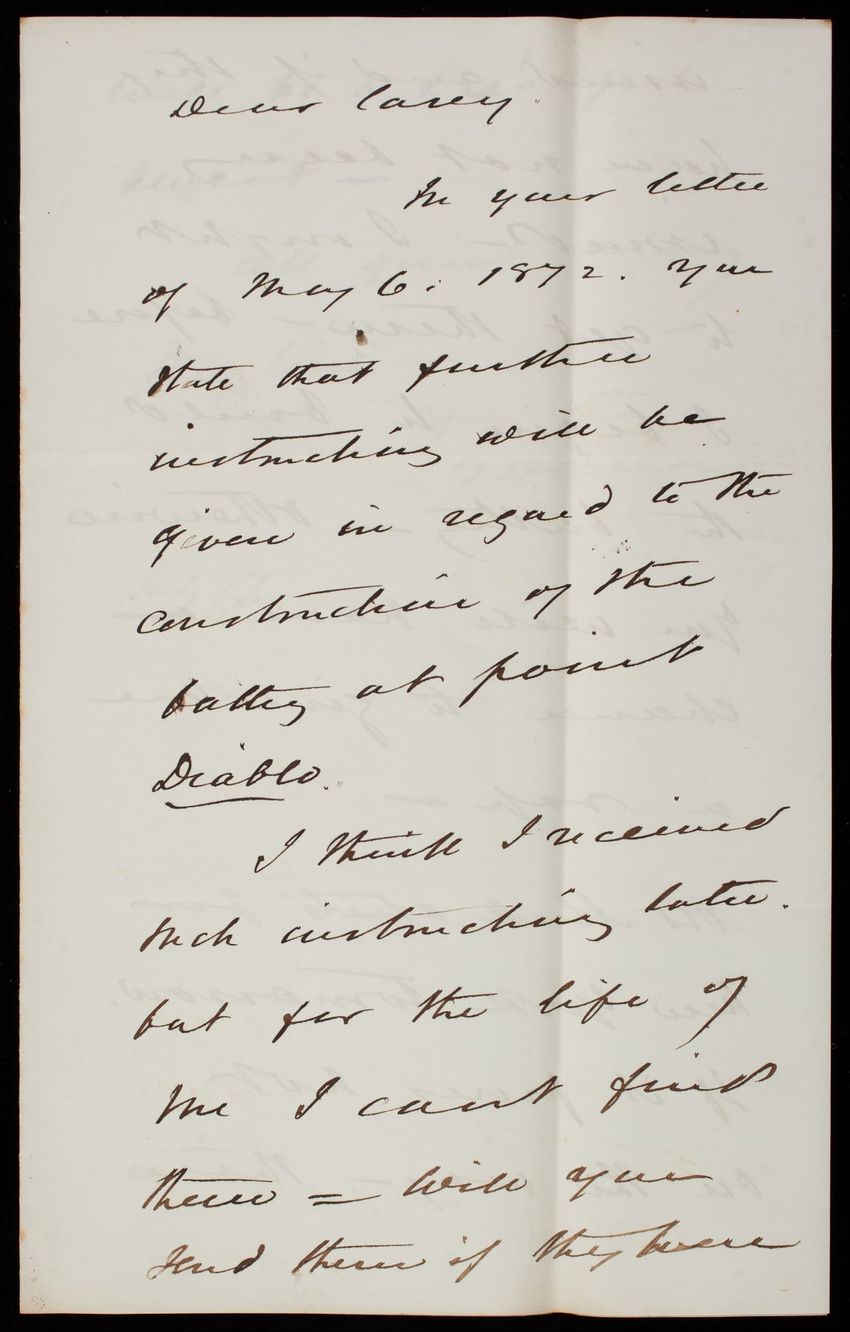 Dear Casey.
In your letter
of May 6. 1872. you
state that further
instructions will be
given in regard to the
construction of the
battery at point
Diablo.
I think I received
such instructions later.
but for the life of
me I cant find
them = Will you
send them if they were